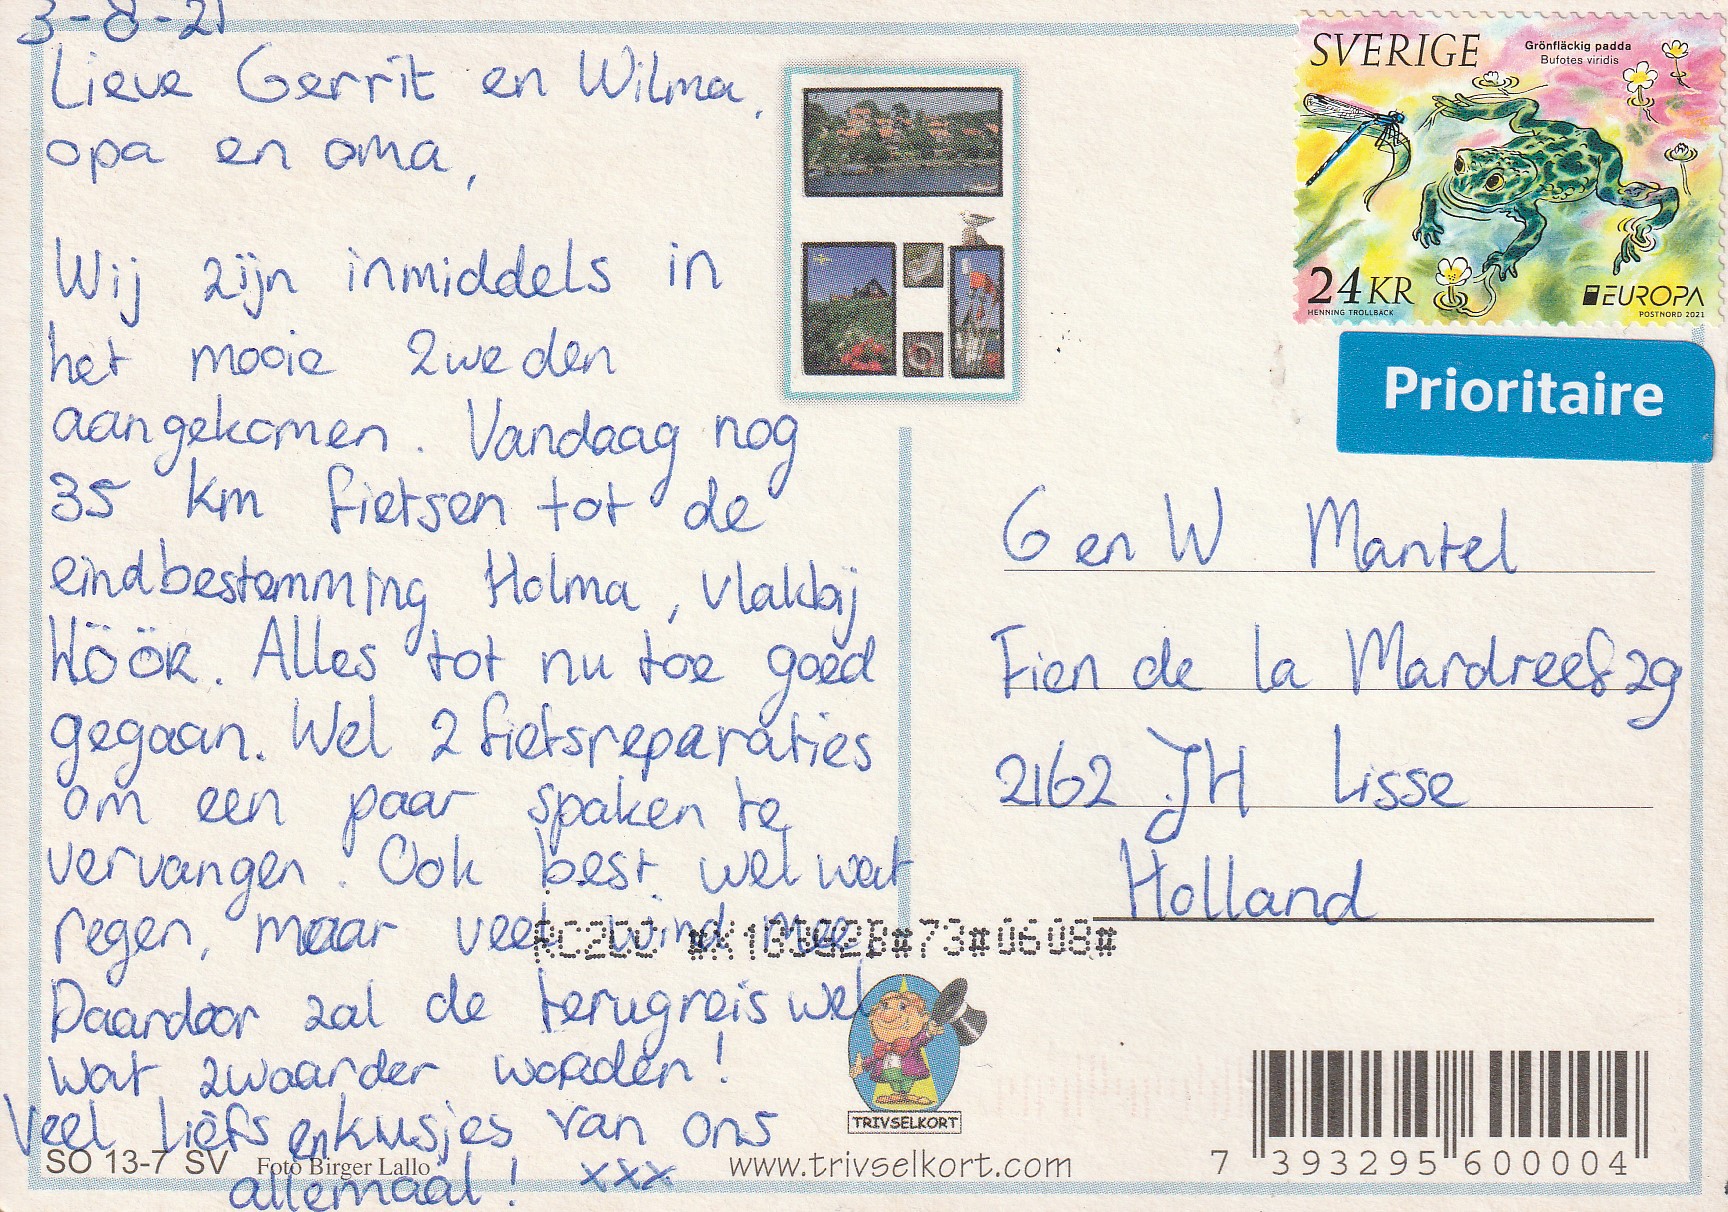 3-8-21
Lieve Gerrit en Wilma,
opa en oma,
Wij zijn inmiddels in
het mooie Zweden
aangekomen. Vandaag nog
35 km fietsen tot de
eindbestemming Holma, vlakbij
Höör. Alles tot nu toe goed
gegaan. Wel 2 fietsreparaties
om een paar spaken te
vervangen. Ook best wel wat
regen, maar veel wind mee
Daardoor zal de terugreis wel
wat zwaarder worden!
Veel liefs en kusjes van ons
allemaal! xxx
SO 13-7 SV Foto Birger Lallo
TRIVSELKORT
www.trivselkort.com
SVERIGE
Grönfläckig padda
Bufotes viridis
24 KR
HENNING TROLLBÄCK
EUROPA
POSTNORD 2021
Prioritaire
G en W Mantel
Fien de la Mardreef 29
2162 JH Lisse
Holland
#73#0608#
7 393295 600004